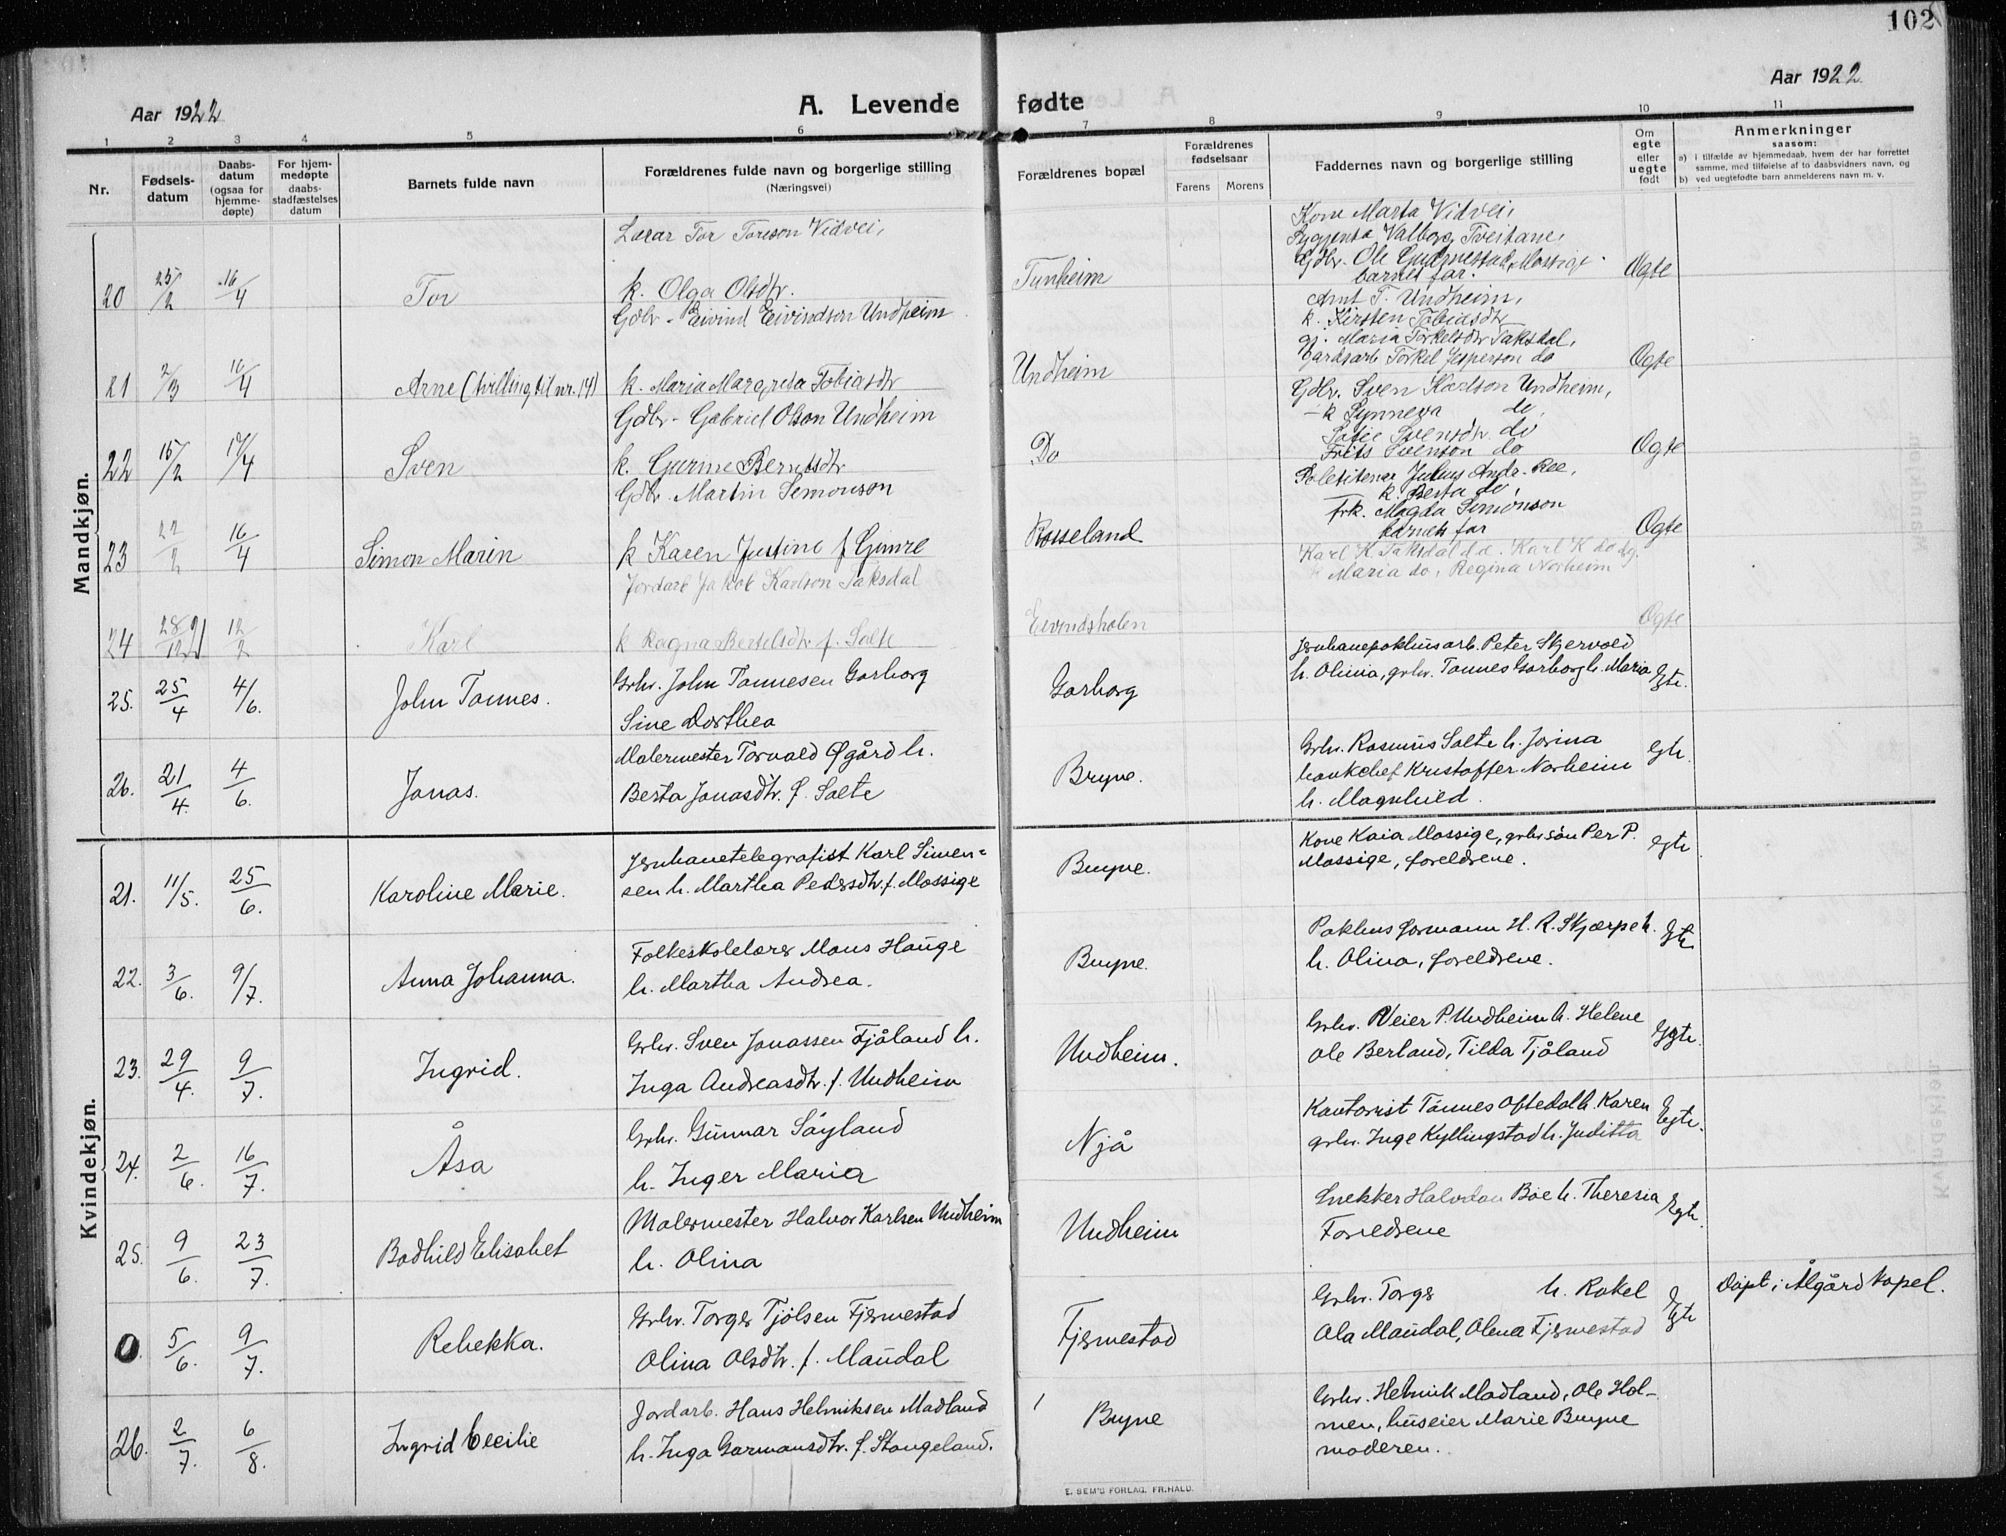 102
Aar 1922
A. Levende fødte
Aar 1922
1 2 3 4 5 6 7 8 9 10 11
Nr.
Fødsels-
datum
Daabs-
datum
(ogsaa for
hjemme-
døpte)
For hjem-
medøpte
daabs-
stadfæstelses
datum
Barnets fulde navn
Forældrenes fulde navn og borgerlige stilling
(Næringsvei)
Forældrenes bopæl
Forældrenes
fødselsaar
Farens Morens
Faddernes navn og borgerlige stilling
Om
egte
eller
uegte
født
Anmerkninger
saasom:
a) i tilfælde av hjemmedaab, hvem der har forrettet
samme, med tilføielse af to daabsvidners navn, og
b) ved uegtefødte barn anmelderens navn m. v.
Mandkjøn.
20 25/2 16/4 Tor
Lærar Tor Toreson Vidvei,
k. Olga Olsdtr.
Tunheim
Kone Marta Vidvei,
Valborg Tveitane,
Gdbr. Ole Gudmestad, Mossige
barnets far.
Ogte
21 2/3 16/4 Arne (tvilling til nr. 19)
Gdbr - Eivind Eivindson Undheim
k. Maria Margreta Tobiasdtr
Undheim
Arnt T. Undheim,
k. Kirsten Tobiasdtr
gj. Maria Torkelsdtr Taksdal,
Gardsarb Torkel Jesperson do
Ogte
22 15/2 17/4 Sven
Gdbr - Gabriel Olson Undheim
k. Gurine Berntsdtr
Do
Gdbr. Sven Karlson Undheim,
- k Synneva do,
Sofie Svensdtr. do
Frits Svenson do
Ogte
23 22/2 16/4 Simon Marin
Gdbr. Martin Simonson
k Karen Justine f Gimre
Rosseland
Julius Andr. Ree,
k. Berta do,
frk. Magda Simonson
barnets far
Ogte
24 28/12 21 12/2 Karl
Jordarb Jakob Karlson Taksdal
k Ragna Bertelsdtr f. Salte
Eivindsholen
Karl K. Taksdal d.e. Karl K do dy.
Maria do, Regina Norheim
Ogte
25. 25/4 4/6. John Tønnes.
Grbr. John Tønnesen Garborg
Sine Dorthea
Garborg
Jernbanepakhusarb. Peter Skjervold
h. Olina, grbr. Tønnes Garborg h. Maria
Egte.
26. 21/4. 4/6. Jonas.
Malermester Torvald Øgård h.
Berta Jonasdtr. f. Salte
Bryne.
Grbr. Rasmus Salte h. Jorina
bankchef Kristoffer Norheim
h. Magnhild.
Egte
Kvindekjøn.
21. 11/5. 25/6. Karoline Marie.
Jernbanetelegrafist Karl Simen=
sen h. Martha Pedersdtr. f. Mossige
Bryne.
Kone Kaia Mossige, grbr søn Per P.
Mossige, foreldrene.
Egte
22. 3/6. 9/7. Anna Johanna.
Folkeskolelærer Mons Hauge
h. Martha Andrea.
Bryne.
Pakhusformann H. R. Skjærpe h.
h. Olina, foreldrene.
Egte
23. 29/4. 9/7. Ingrid.
Grbr. Sven Jonassen Fjåland h.
Inga Andreasdtr. f. Undheim
Undheim.
Grbr. Reier P. Undheim h. Helene
Ole Berland, Tilda Tjåland
Egte.
24. 2/6. 16/7. Åsa
Grbr. Gunnar Søyland
h. Inger Maria
Njå
Kontorist Tønnes Oftedal h. Karen
grbr. Inge Kyllingstad h. Juditta
Egte.
25. 9/6. 23/7. Bodhild Elisabet
Malermester Halvor Karlsen Undheim
h. Olina
Undheim
Snekker Halvdan Bøe h. Theresia
Foreldrene
Egte.
0. 5/6. 9/7. Rebekka.
Grbr. Torger Tjølsen Fjermestad
Olina Olsdtr. f. Maudal
Fjermestad
Grbr. Torger h. Rakel
Ola Maudal, Olena Fjermestad
Egte
Døpt i Ålgård kapel.
26. 2/7. 6/8. Ingrid Cecilie
Jordarb. Hans Helmiksen Madland
h. Inga Garmansdtr. f. Stangeland.
Bryne
Grbr. Helmik Madland, Ole Hol-
men, huseier Marie Bryne
moderen.
E. SEM'S FORLAG, FR.HALD.